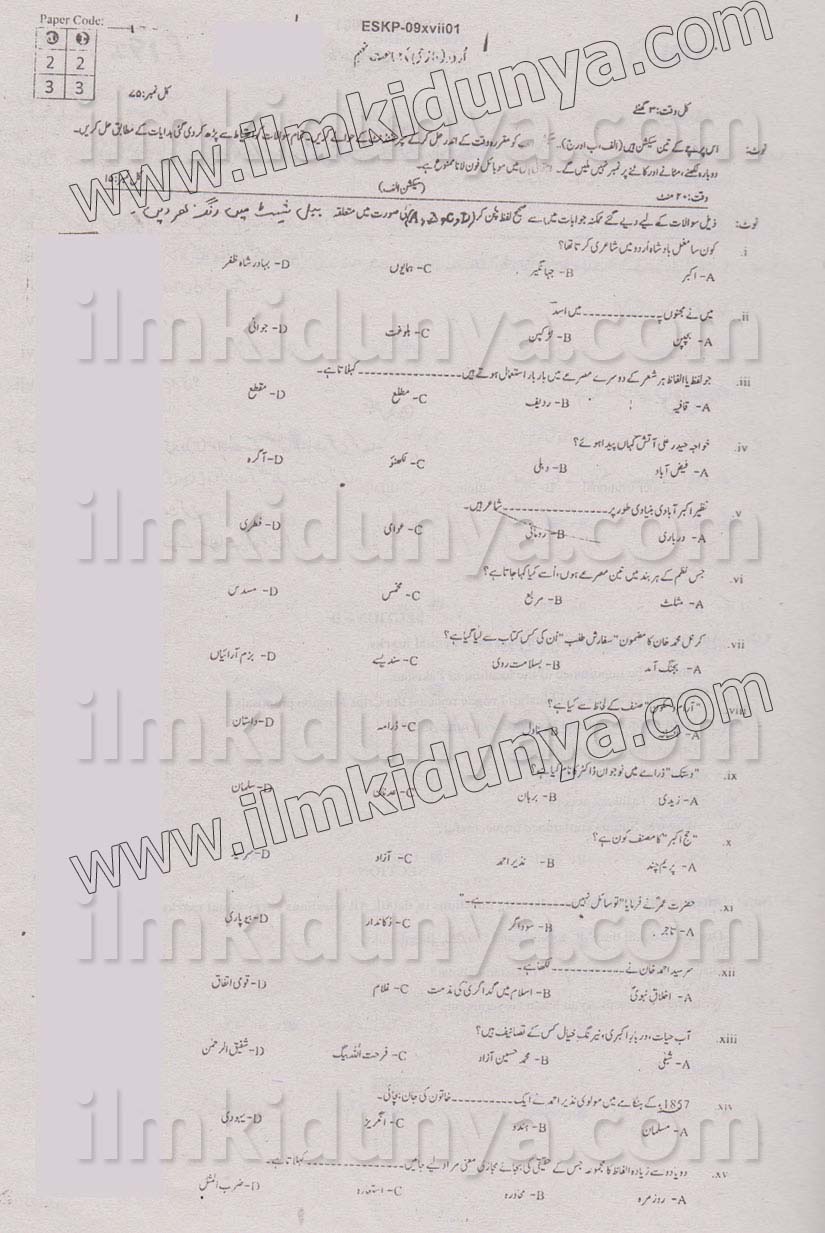 Paper Code:
ESKP-09xvii01
2 2
3 3
کل نمبر: ۷۵
کل وقت: ۳ گھنٹے
نوٹ: اس پرچے کے تین سیکشن ہیں (الف، ب اور ج)۔ کو مقررہ وقت کے اندر حل کر کے کے حوالے کریں۔ تمام سوالات کو احتیاط سے پڑھ کر دی گئی ہدایات کے مطابق حل کریں۔
دوبارہ لکھنے، مٹانے اور کاٹنے پر نمبر نہیں ملیں گے۔ میں موبائل فون لانا ممنوع ہے۔
وقت: ۲۰ منٹ (سیکشن الف) کل نمبر: ۱۵
نوٹ: ذیل سوالات کے لیے دیے گئے ممکنہ جوابات میں سے صحیح لفظ چُن کر (A, B, C, D) کی صورت میں متعلقہ ببل شیٹ میں رنگ بھر دیں۔
i. کون سا مغل بادشاہ اُردو میں شاعری کرتا تھا؟
A- اکبر B- جہانگیر C- ہمایوں D- بہادر شاہ ظفر
ii. میں نے مجنوں پہ ------------ میں اسد
A- بچپن B- لڑکپن C- بلوغت D- جوانی
iii. جو لفظ یا الفاظ ہر شعر کے دوسرے مصرعے میں بار بار استعمال ہوتے ہیں ------------ کہلاتا ہے۔
A- قافیہ B- ردیف C- مطلع D- مقطع
iv. خواجہ حیدر علی آتش کہاں پیدا ہوئے؟
A- فیض آباد B- دہلی C- لکھنؤ D- آگرہ
v. نظیر اکبر آبادی بنیادی طور پر ------------ شاعر ہیں۔
A- درباری B- رومانی C- عوامی D- فطری
vi. جس نظم کے ہر بند میں تین مصرعے ہوں، اُسے کیا کہا جاتا ہے؟
A- مثلث B- مربع C- مخمس D- مسدس
vii. کرنل محمد خان کا مضمون "سفارش طلب" اُن کی کس کتاب سے لیا گیا ہے؟
A- بجنگ آمد B- بسلامت روی C- سندیسے D- بزم آرائیاں
viii. "آرام و سکون" صنف کے لحاظ سے کیا ہے؟
A- B- ناول C- ڈرامہ D- داستان
ix. "دستک" ڈرامے میں نوجوان ڈاکٹر کا نام کیا ہے؟
A- زیدی B- برہان C- D- سلمان
x. "حج اکبر" کا مصنف کون ہے؟
A- پریم چند B- نذیر احمد C- آزاد D- سرسید
xi. حضرت عمرؓ نے فرمایا "تو سائل نہیں ------------ ہے۔"
A- تاجر B- سوداگر C- دُکاندار D- بیوپاری
xii. سرسید احمد خان نے ------------ لکھا ہے۔
A- اخلاقِ نبویؐ B- اسلام میں گداگری کی مذمت C- غلام D- قومی اتفاق
xiii. آب حیات، دربار اکبری، نیرنگ خیال کس کے تصانیف ہیں؟
A- شبلی B- محمد حسین آزاد C- فرحت اللہ بیگ D- شفیق الرحمن
xiv. 1857ء کے ہنگامے میں مولوی نذیر احمد نے ایک ------------ خاتون کی جان بچائی۔
A- مسلمان B- ہندو C- انگریز D- یہودی
xv. دو یا دو سے زیادہ الفاظ کا مجموعہ جس کے حقیقی کی بجائے مجازی معنی مراد لیے جائیں ------------ کہلاتا ہے۔
A- روزمرہ B- محاورہ C- استعارہ D- ضرب المثل
ilmkidunya.com
www.ilmkidunya.com
ilmkidunya.com
ilmkidunya.com
www.ilmkidunya.com
ilmkidunya.com
ilmkidunya.com
ilmkidunya.com